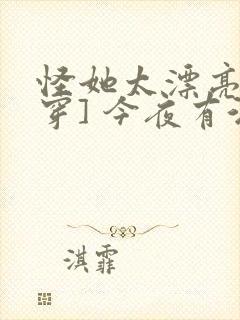 怪她太漂亮
穿] 今夜有
淇霏